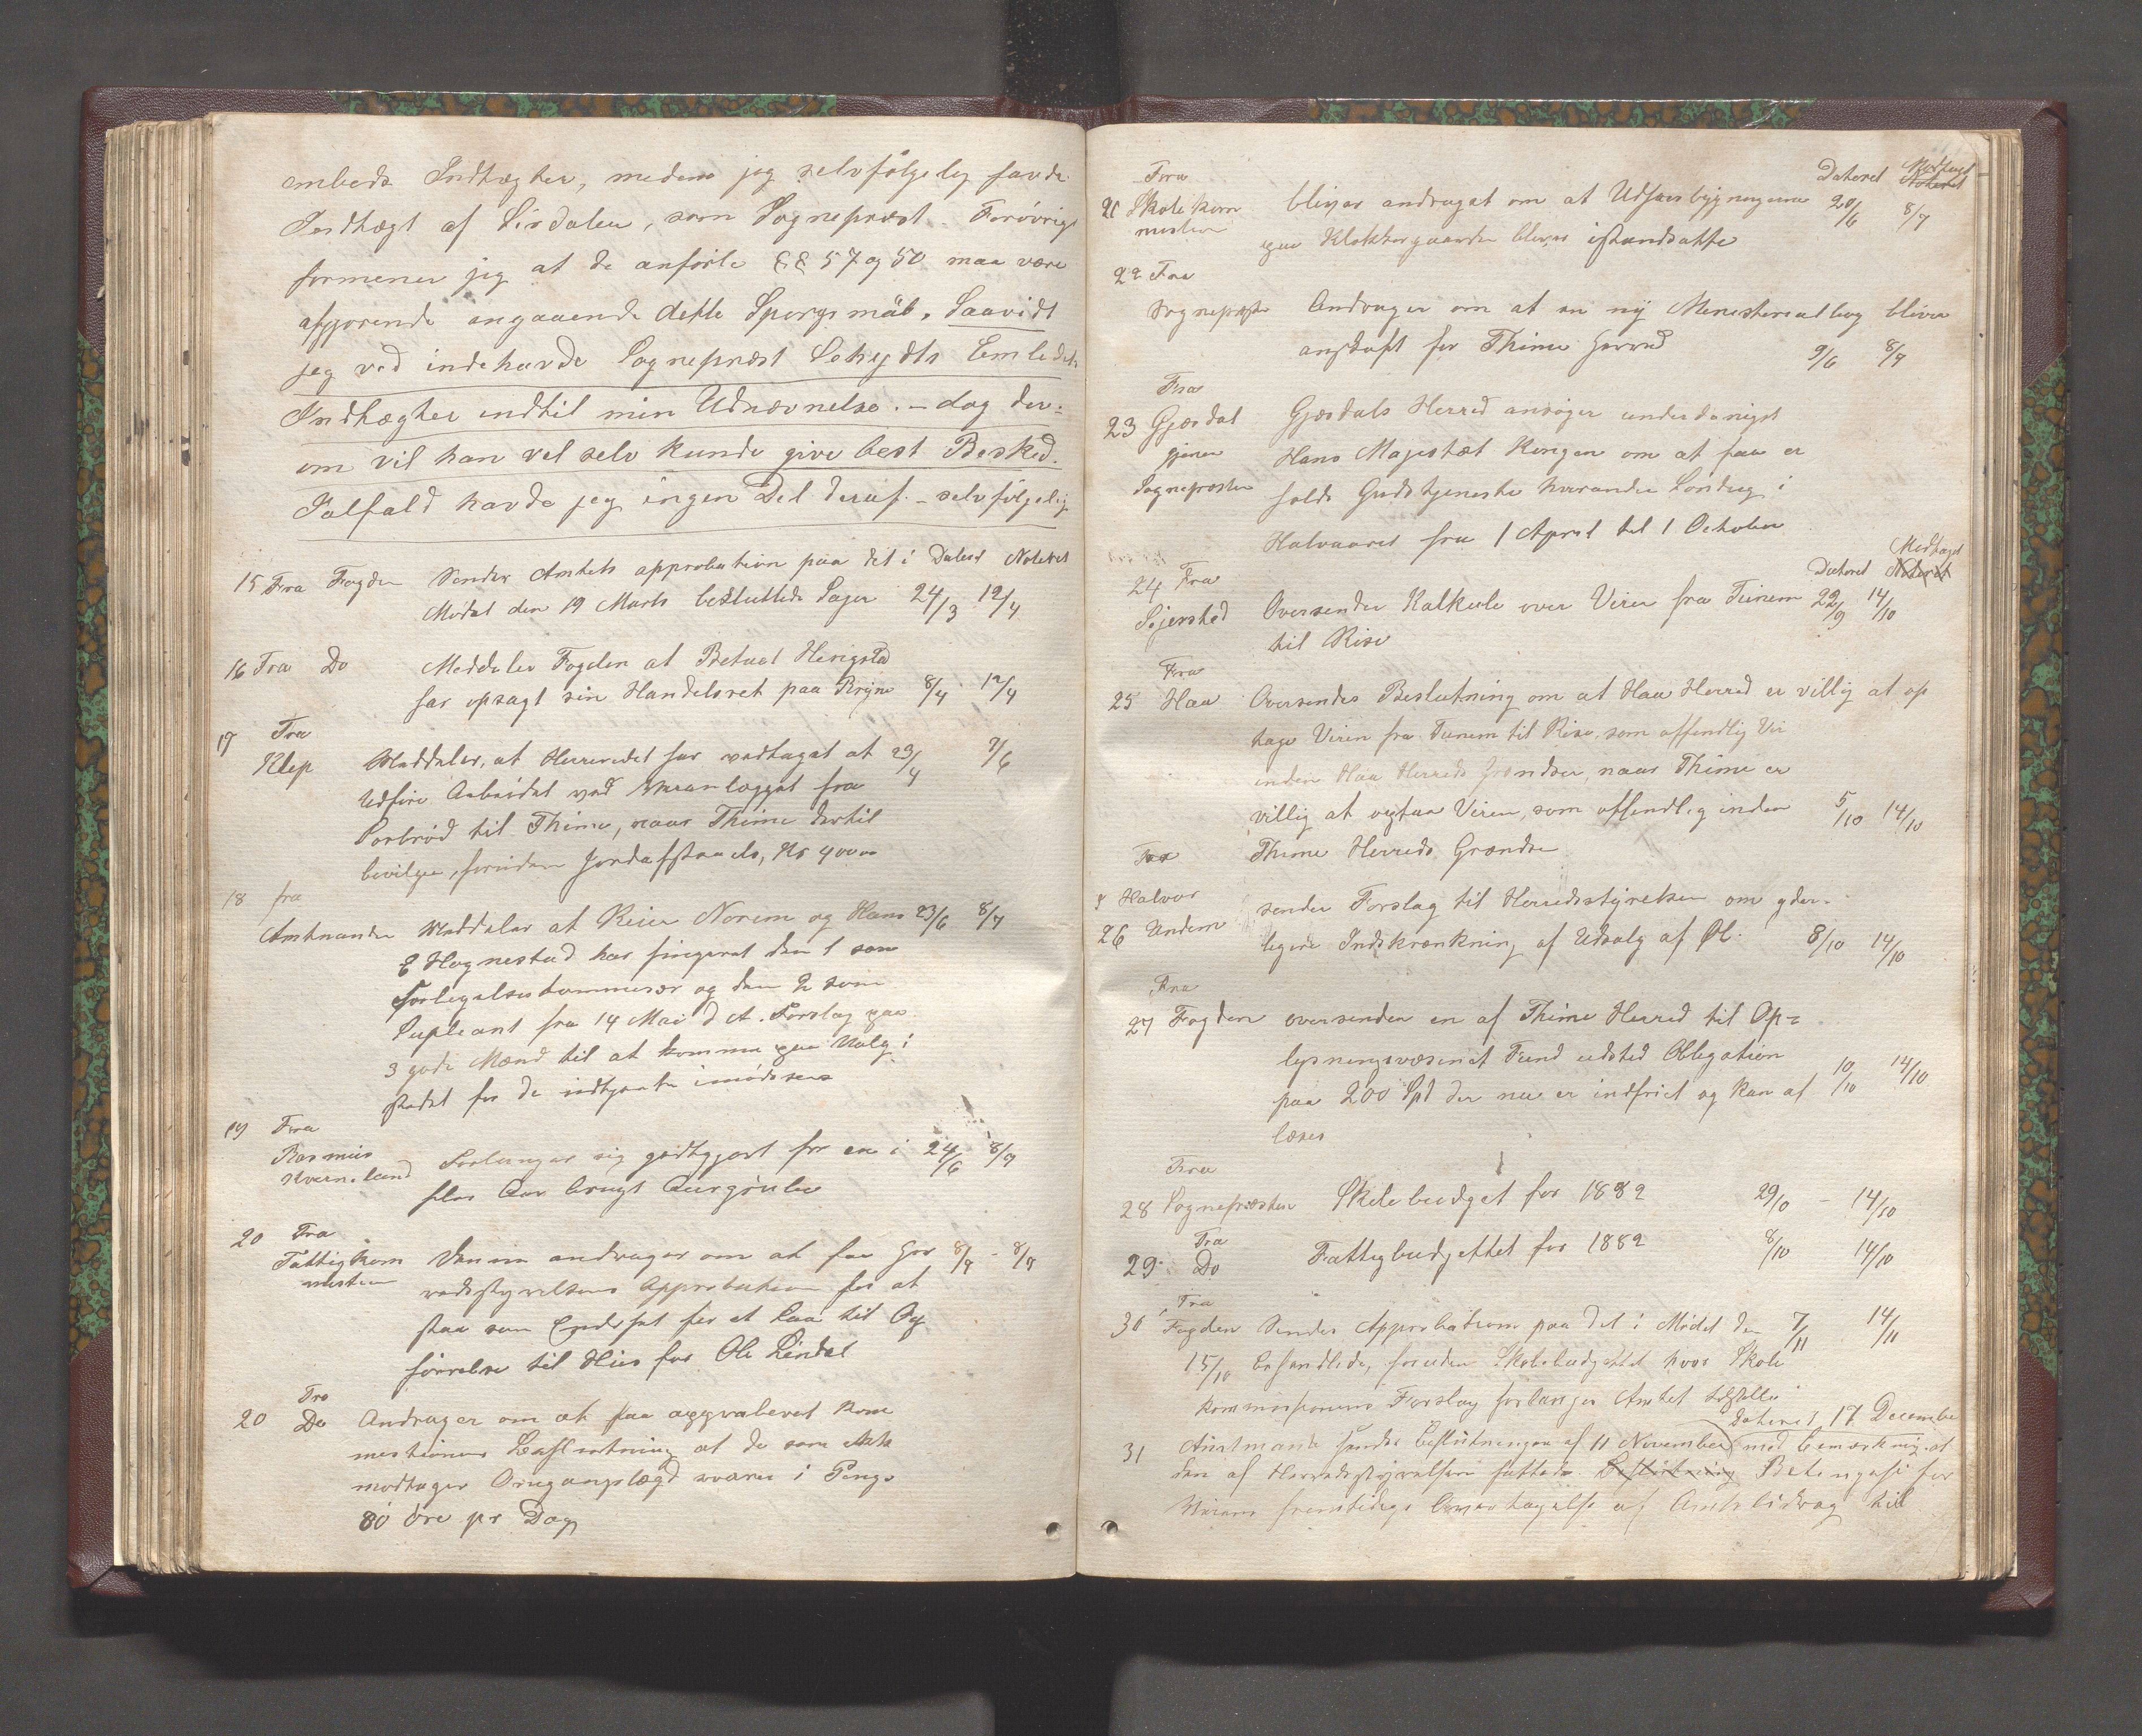 embeds Indtægter, medens jeg selvfølgelig havde
Indtægt af Sirdalen, som Sognepræst. Forøvrigt
formener jeg at de anførte §§ 57 og 50 maa være
afgjørende angaaende dette Spørgsmål. Saavidt
jeg ved indehavde Sognepræst Schydts Embeds
Indtægter indtil min Udnævnelse. – dog der-
om vil han vel selv kunde give best Besked.
Ialfald havde jeg ingen Del deraf – selvfølgelig
15 Fra Fogden Sender Amtets approbation paa det i Dateret Noteret
Mødet den 19 Marts besluttede Sager 24/3 12/4
16 Fra Do Meddeler Fogden at Betuel Herigstad
har opsagt sin Handelsret paa Bryne 8/4 12/4
17 Fra
Klep Meddeler, at Herredet har vedtaget at 23/4 7/6
Udføre Arbeidet ved Veranlægget fra
til Thime, naar Thime dertil
beviliger, foruden Jordafstaaels, Kr 400
18 fra
Amtmanden Meddeler at Reier Norem og Hans 23/6 8/7
E Hognestad har fingeret den 1 som
Forligelseskommisær og den 2 som
Supleant fra 14 Mai d A. Forslag paa
3 gode Mænd til at komme paa Valg i
stedet for de indtgaate imødesees
19 Fra
Rasmus
Kverneland Forlanger sig godtgjort for en i 24/6 8/7
brugt
20 Fra
Fattigkom
mission Denne andrager om at faa Her 8/7 - 8/7
redsstyrelsens Approbation for at
staa som for et Laan til Op
førrelse til Hus for Ole Lindal
Fra
20 Do Andrager om at faa approberet Kom
missionens Beslutning at de som ikke
modtager Omgangslægd svarer i Penge
80 öre pr Dag
Dateret Modtaget Noteret
Fra
21 Skolekom
mission bliver andraget om at Udhusbygningerne 20/6 8/7
paa Klokkergaarden blives istandsatte
22 Fra
Sognepræste Andrager om at en ny Menisterialbog bliver
anskaft for Thime Herred 9/6 8/7
Fra
23 Gjesdal
gjenem
Sognepresten
Gjesdals Herred ansøger underdanigst
Hans Majestæt Kongen om at faa er
holde Gudstjeneste hverandre Söndag i
Halvaaret fra 1 April til 1 October
Dateret Modtaget Noteret
24 Fra
Sejersted Oversender Kalkule over Veien fra Tunem 22/9 14/10
til Rise
Fra
25 Haa Oversendes Beslutning om at Haa Herred er villig at op
tage Veien fra Tunem til Rise, som offendlig Vei
inden Haa Herreds Grændser, naar Thime er
villig at optaa Veien, som offendlig inden 5/10 14/10
Thime Herreds Grændse
Fra
Halvor
26 Undem sender Forslag til Herredsstyrelsen om yder-
ligere Indskrænkning af Udsalg af Øl. 8/10 14/10
Fra
27 Fogden oversender en af Thime Herred til Op-
lysningsvæsenet Fund udsted Oblegation
paa 200 Spd der nu er indfriet og kan af 10/10 14/10
læses
Fra
28 Sognepræsten Skolebudget for 1882 29/10 – 14/10
Fra
29 Do Fattigbudgettet for 1882 8/10 14/10
Fra
30 Fogden Sender Approbation paa det i Mødet den 7/11 14/11
15/10 behandlede, foruden Skolebudgettet hvor Skole
kommissionens Forslag forlanges Amtet tilstille
dateret 17 Decembe
31 Amtmand sender Beslutningen af 11 November med bemærkning at
den af Herredsstyrelsen fattede Beslutning Betingelse for
Veiens fremtidige af Amtsbidrag til